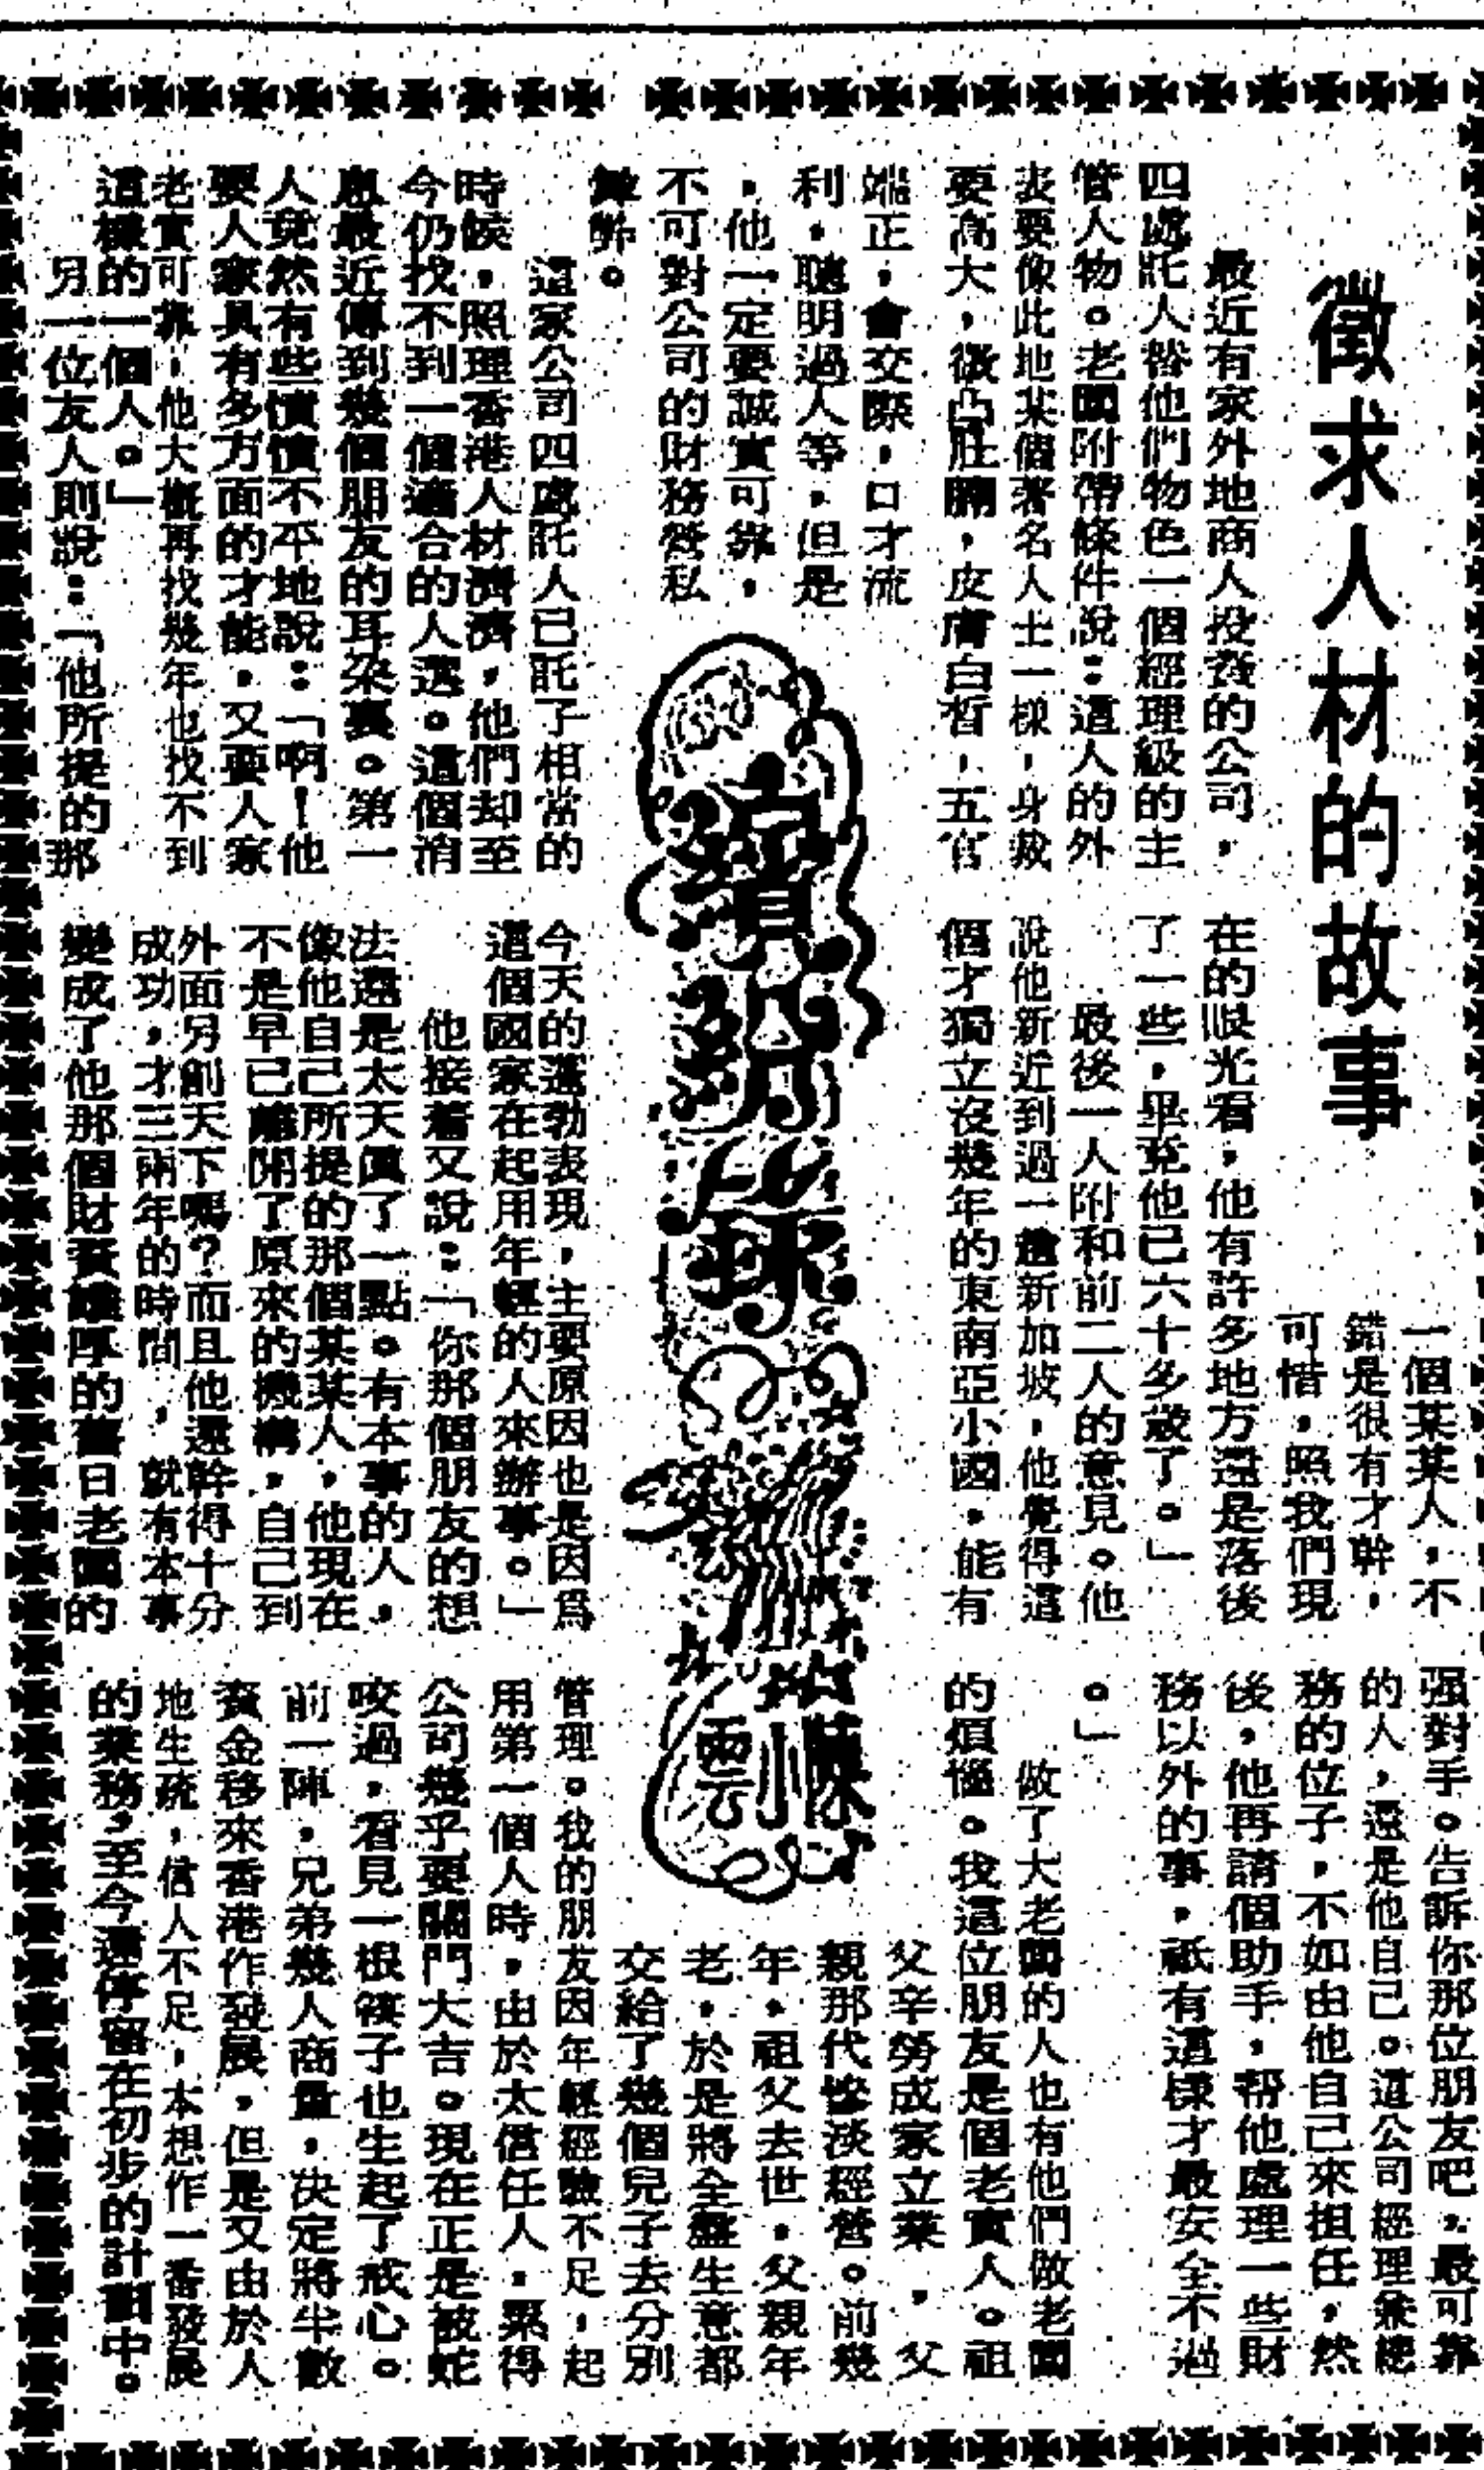 徵求人材的故事
最近有家外地商人投資的公司，
四處託人替他們物色一個經理級的主
管人物。老闆附帶條件說：這人的外
表要像此地某個著名人士一樣，身裁
要高大，微凸肚腩，皮膚白皙，五官
端正，會交際，口才流
利，聰明過人等，但是
，他一定要誠實可靠，
不可對公司的財務營私
舞弊。
這家公司四處託人已託了相當的
時候，照理香港人材濟濟，他們却至
今仍找不到一個適合的人選。這個消
息最近傳到幾個朋友的耳朶裏。第一
人竟然有些憤憤不平地說：「啊！他
要人家具有多方面的才能，又要人家
老實可靠，他大概再找幾年也找不到
這樣的一個人。」
另一位友人則說：「他所提的那
一個某某人，不
錯是很有才幹，
可惜，照我們現
在的眼光看，他有許多地方還是落後
了一些，畢竟他已六十多歲了。」
最後一人附和前二人的意見。他
說他新近到過一趟新加坡，他覺得這
個才獨立沒幾年的東南亞小國，能有
今天的蓬勃表現，主要原因也是因爲
這個國家在起用年輕的人來辦事。」
他接着又說：「你那個朋友的想
法還是太天眞了一點。有本事的人，
像他自己所提的那個某某人，他現在
不是早已離開了原來的機構，自己到
外面另創天下嗎？而且他還幹得十分
成功，才三兩年的時間，就有本事
變成了他那個財資雄厚的舊日老闆的
强對手。告訴你那位朋友吧，最可靠
的人，還是他自己。這公司經理兼總
務的位子，不如由他自己來担任，然
後，他再請個助手，帮他處理一些財
務以外的事，祇有這樣才最安全不過
。」
做了大老闆的人也有他們做老闆
的煩惱。我這位朋友是個老實人。祖
父辛勞成家立業，父
親那代慘淡經營。前幾
年，祖父去世，父親年
老，於是將全盤生意都
交給了幾個兒子去分別
管理。我的朋友因年輕經驗不足，起
用第一個人時，由於太信任人，累得
公司幾乎要關門大吉。現在正是被蛇
咬過，看見一根筷子也生起了戒心。
前一陣，兄弟幾人商量，決定將半數
資金移來香港作發展，但是又由於人
地生疏，信人不足，本想作一番發展
的業務，至今還停留在初步的計劃中。
繽紛